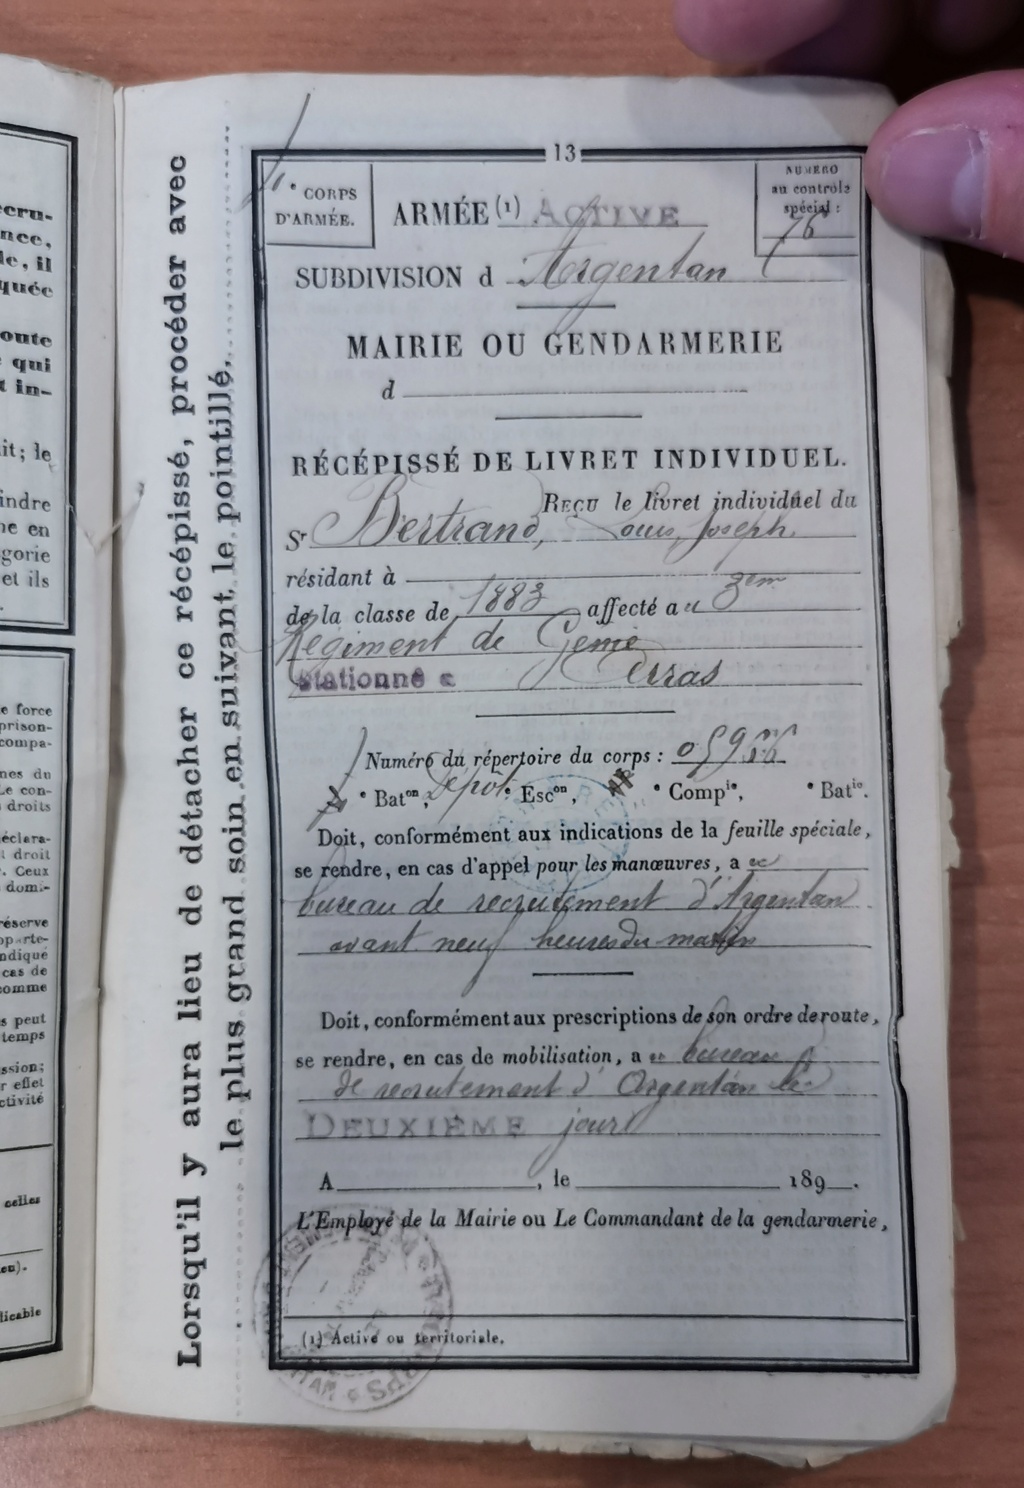 ecru-
nce,
le, il
quée
oute
qui
t in-
it; le
indre
ne en
gorie
et ils
e force
prison-
compa-
nes du
Le con-
droits
éclara-
t droit
. Ceux
domi-
réserve
opparte-
ndiqué
cas de
comme
s peut
temps
ssion;
r effet
ctivité
celles
eu).
licable
Lorsqu'il y aura lieu de détacher ce récépissé, procéder avec
le plus grand soin en suivant le pointillé.
13
4e CORPS
D'ARMÉE.
ARMÉE (1) ACTIVE
NUMÉRO
au contrôle
spécial :
76
SUBDIVISION d Argentan
MAIRIE OU GENDARMERIE
d
RÉCÉPISSÉ DE LIVRET INDIVIDUEL.
REÇU le livret individuel du
Sr Bertrand, Louis Joseph
résidant à
de la classe de 1883 affecté au 3em
Régiment de Génie
stationné à Arras
Numéro du répertoire du corps :
e Baton, Dépôt e Escon, e Compie, e Batie.
Doit, conformément aux indications de la feuille spéciale,
se rendre, en cas d'appel pour les manœuvres, a u
bureau de recrutement d'Argentan
avant neuf heures du matin
Doit, conformément aux prescriptions de son ordre de route,
se rendre, en cas de mobilisation, a u bureau
de recrutement d'Argentan le
DEUXIÈME jour
A , le 189 .
L'Employé de la Mairie ou Le Commandant de la gendarmerie,
(1) Active ou territoriale.